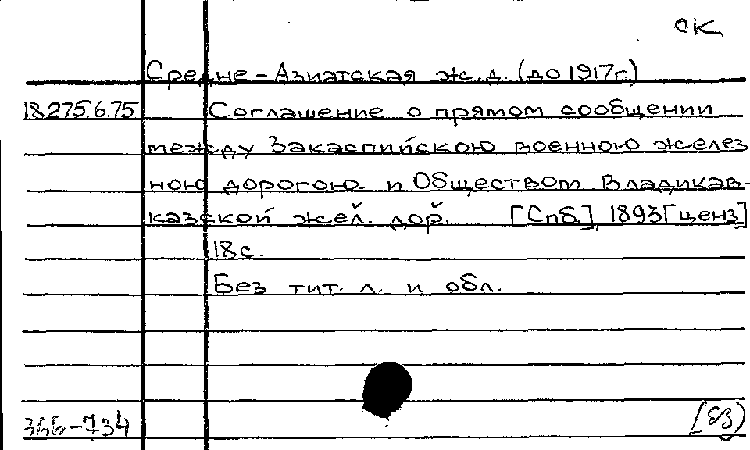 ск
Средне-Азиатская ж.д. (до 1917г.)
18.275.6.75 Соглашение о прямом сообщении
между Закаспийскою военною желез
ною дорогою и Обществом Владикав-
казской жел. дор. [Спб], 1893 [ценз]
18 с.
Без тит. л. и обл.
366-734 [83)